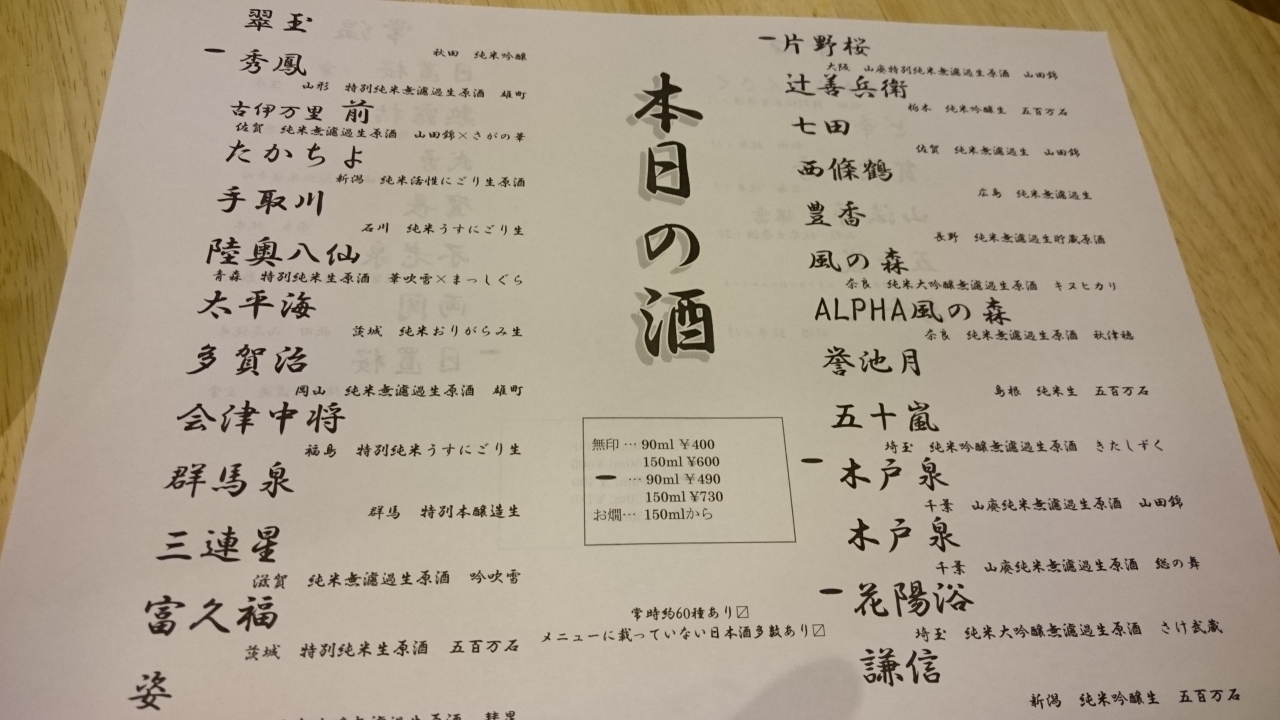 本日の酒
一 片野桜
大阪 山廃特別純米無濾過生原酒 山田錦
辻善兵衛
栃木 純米吟醸生 五百万石
七田
佐賀 純米無濾過生 山田錦
西條鶴
広島 純米無濾過生
豊香
長野 純米無濾過生貯蔵原酒
風の森
奈良 純米大吟醸無濾過生原酒 キヌヒカリ
ALPHA風の森
奈良 純米無濾過生原酒 秋津穂
誉池月
島根 純米生 五百万石
五十嵐
埼玉 純米吟醸無濾過生原酒 きたしずく
一 木戸泉
千葉 山廃純米無濾過生原酒 山田錦
木戸泉
千葉 山廃純米無濾過生原酒 総の舞
一 花陽浴
埼玉 純米大吟醸無濾過生原酒 さけ武蔵
謙信
新潟 純米吟醸生 五百万石
無印…90ml ¥400
150ml ¥600
一 …90ml ¥490
150ml ¥730
お燗…150mlから
常時約60種あり〼
メニューに載っていない日本酒多数あり〼
翠玉
秋田 純米吟醸
一 秀鳳
山形 特別純米無濾過生原酒 雄町
古伊万里 前
佐賀 純米無濾過生原酒 山田錦×さがの華
たかちよ
新潟 純米活性にごり生原酒
手取川
石川 純米うすにごり生
陸奥八仙
青森 特別純米生原酒 華吹雪×まっしぐら
太平海
茨城 純米おりがらみ生
多賀治
岡山 純米無濾過生原酒 雄町
会津中将
福島 特別純米うすにごり生
群馬泉
群馬 特別本醸造生
三連星
滋賀 純米無濾過生原酒 吟吹雪
富久福
茨城 特別純米生原酒 五百万石
姿